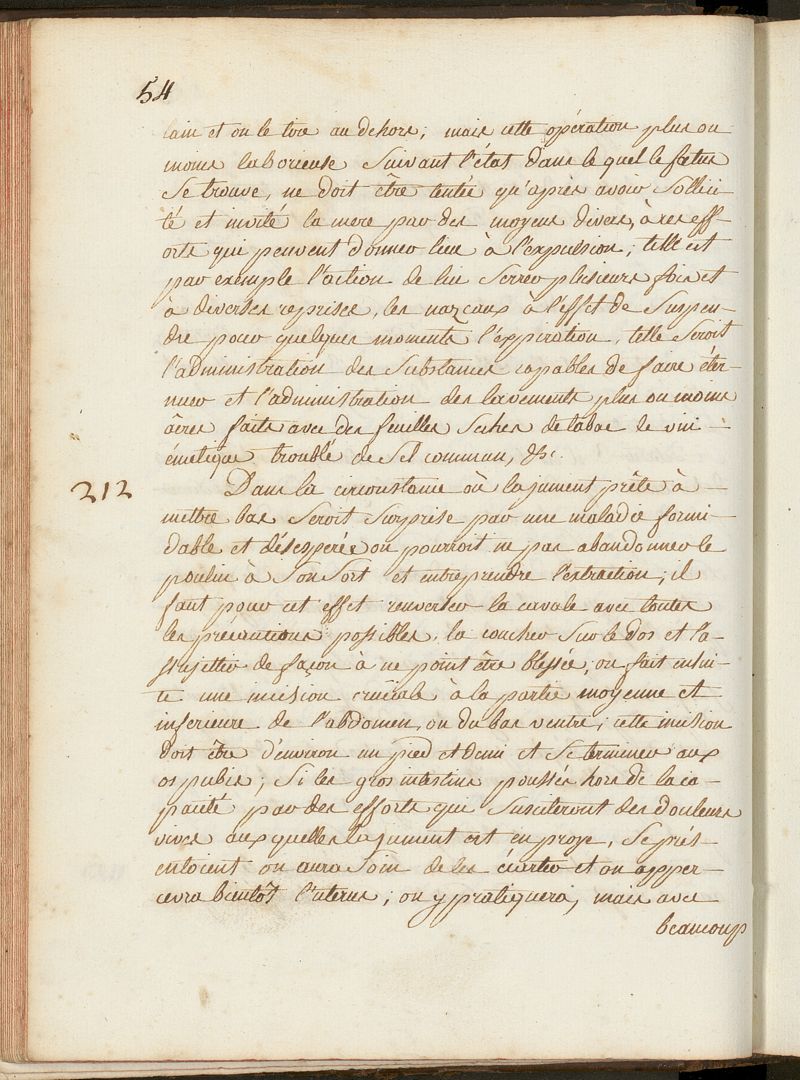 54
lain et on le tire au dehors; mais cette opération plus ou
moins laborieuse Suivant l'état dans le quel le foetus
Se trouve, ne doit être tentée qu'après avoir Sollici-
té et invité la mere par des moyens divers, à ces eff-
orts qui peuvent donner lieu à l'expulsion; telle est
par exemple l'action de lui Serrer plusieurs fois et
à diverses reprises, les nazeaux à l'effet de Suspen-
dre pour quelques moments l'expiration, telle Seroit
l'administration des Substances capables de faire éter-
nuer et l'administration des lavements plus ou moins
âcres faits avec des feuilles Seches de tabac le vin
émetique troublé de Sel commun, &c.
212 Dans la circonstance où la jument prête à
mettre bas Seroit Surprise par une maladie formi
dable et désesperée on pourroit ne pas abandonner le
poulin à Son Sort et entreprendre l'extraction; il
faut pour cet effet renverser la cavale avec toutes
les précautions possibles, la coucher Sur le dos et l'a-
ssujettir de façon à ne point être blessée, on fait ensui-
te une incision crurale à la partie moyenne et
inferieure de l'abdomen, ou du bas ventre; cette incision
doit être d'environ un pied et demi et Se terminer aux
os pubis; Si les gros intestins poussés hors de la ca-
pacité par des efforts qui Susciteront des douleurs
vives aux quelles la jument est en proye, Se prés-
entoient on aura Soin de les écarter et on apper-
cevra bientôt l'uterus; on y pratiquera, mais avec
beaucoup